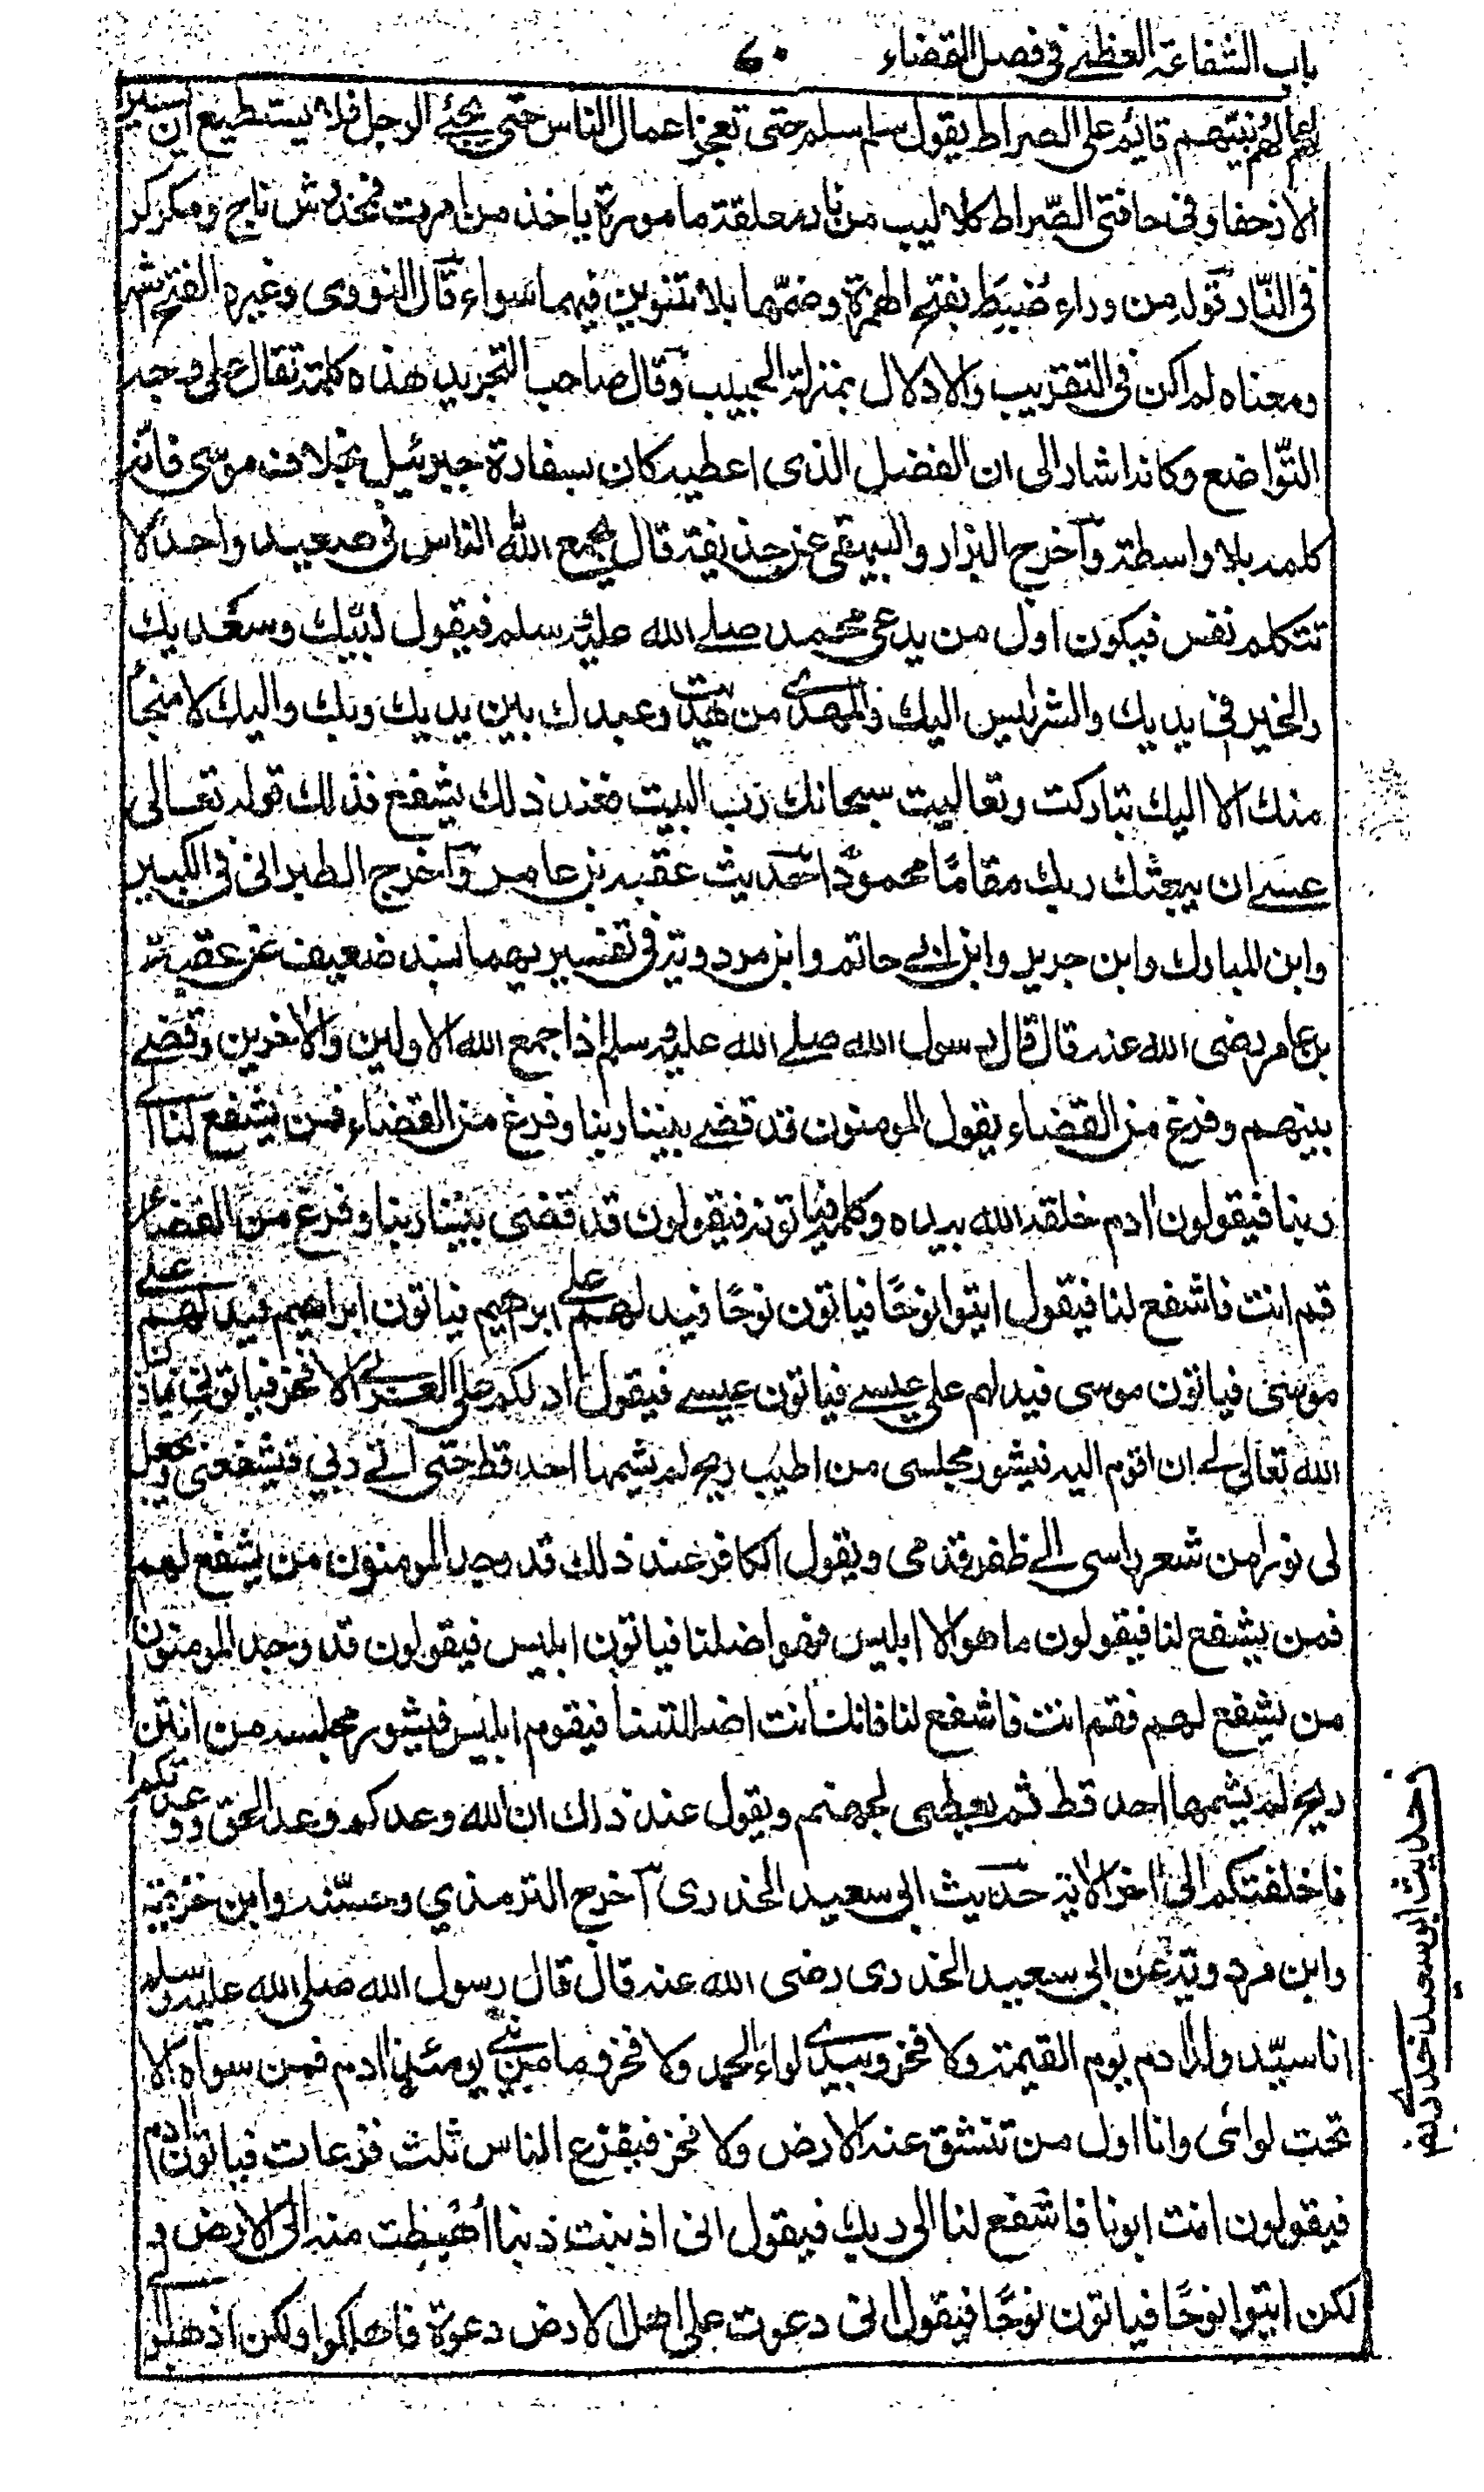 باب الشفاعة العظمے فی فصل القضاء ٦٠
اعمالهم نبيهم قائم على الصراط يقول سلم سلم حتى تعجز اعمال الناس حتى يجئ الرجل فلا يستطيع ان يسير
الا زحفا وفى حافتى الصراط كلاليب من نار معلقة مامورة ياخذ من امرت فمخدوش ناج ومكركر
فى النار قوله من وراء ضبط بفتح الهمزة وضمها بلا تنوين فيهما سواء قال النووى وغيره الفتح اشهر
ومعناه لم اكن فى التقريب والادلال بمنزلة الحبيب وقال صاحب التحرير هذه كلمة تقال على وجه
التواضع وكانه اشار الى ان الفضل الذى اعطيه كان بسفارة جبرئيل بخلاف موسى فانه
كلمه بلا واسطة وآخرج البزار والبيهقى عن حذيفة قال يجمع الله الناس فى صعيد واحد لا
تتكلم نفس فيكون اول من يدعى محمد صلے الله عليه وسلم فيقول لبيك وسعديك
والخير فى يديك والشر ليس اليك والمهدى من هديت وعبدك بين يديك وبك واليك لا منجأ
منك الا اليك تباركت وتعاليت سبحانك رب البيت فعند ذلك يشفع فذلك قوله تعالى
عسے ان يبعثك ربك مقاما محمودا حديث عقبة بن عامر وآخرج الطبرانى فى الكبير
وابن المبارك وابن جرير وابن ابى حاتم وابن مردوية فى تفسيريهما بسند ضعيف عن عقبة
بن عامر رضى الله عنه قال قال رسول الله صلے الله عليه وسلم اذا جمع الله الاولين والاخرين وقضے
بينهم وفرغ من القضاء يقول المومنون قد قضے بيننا ربنا وفرغ من القضاء فمن يشفع لنا الے
ربنا فيقولون ادم خلقه الله بيده وكلمه فياتونه فيقولون قد قضى بيننا ربنا وفرغ من القضاء
قم انت فاشفع لنا فيقول ايتوا نوحا فياتون نوحا فيدلهم على ابرهيم فياتون ابراهيم فيدلهم علے
موسى فياتون موسى فيدلهم على عيسے فياتون عيسے فيقول ادلكم على العربے الا فخر فياتونى فياذن
الله تعالى لے ان اقوم اليه فيثور مجلسى من اطيب ريح لم يشمها احد قط حتى اتے ربي فيشفعنى ويجعل
لى نورا من شعر راسى الے ظفر قدمى ويقول الكافر عند ذلك قد وجد المومنون من يشفع لهم
فمن يشفع لنا فيقولون ما هو الا ابليس فهو اضلنا فياتون ابليس فيقولون قد وجد المومنون
من يشفع لهم فقم انت فاشفع لنا فانك انت اضللتنا فيقوم ابليس فيثور مجلسه من انتن
ريح لم يشمها احد قط ثم يعظمى لجهنم ويقول عند ذلك ان الله وعدكم وعد الحق ووعدتكم
فاخلفتكم الى اخر الاية حديث ابى سعيد الخدرى آخرج الترمذي وحسنه وابن خزيمة
وابن مردوية عن ابى سعيد الخدرى رضى الله عنه قال قال رسول الله صلى الله عليه وسلم
انا سيد ولد ادم يوم القيمة ولا فخر وبيدے لواء الحمد ولا فخر وما من نبے يومئذ ادم فمن سواه الا
تحت لوائى وانا اول من تنشق عنه الارض ولا فخر فيفزع الناس ثلث فزعات فياتون ادم
فيقولون انت ابونا فاشفع لنا الى ربك فيقول انى اذنبت ذنبا اهبطت منه الى الارض و
لكن ايتوا نوحا فياتون نوحا فيقول انى دعوت على اهل الارض دعوة فاهلكوا ولكن اذهبوا الے
حديث ابو سعيد خدرے رض